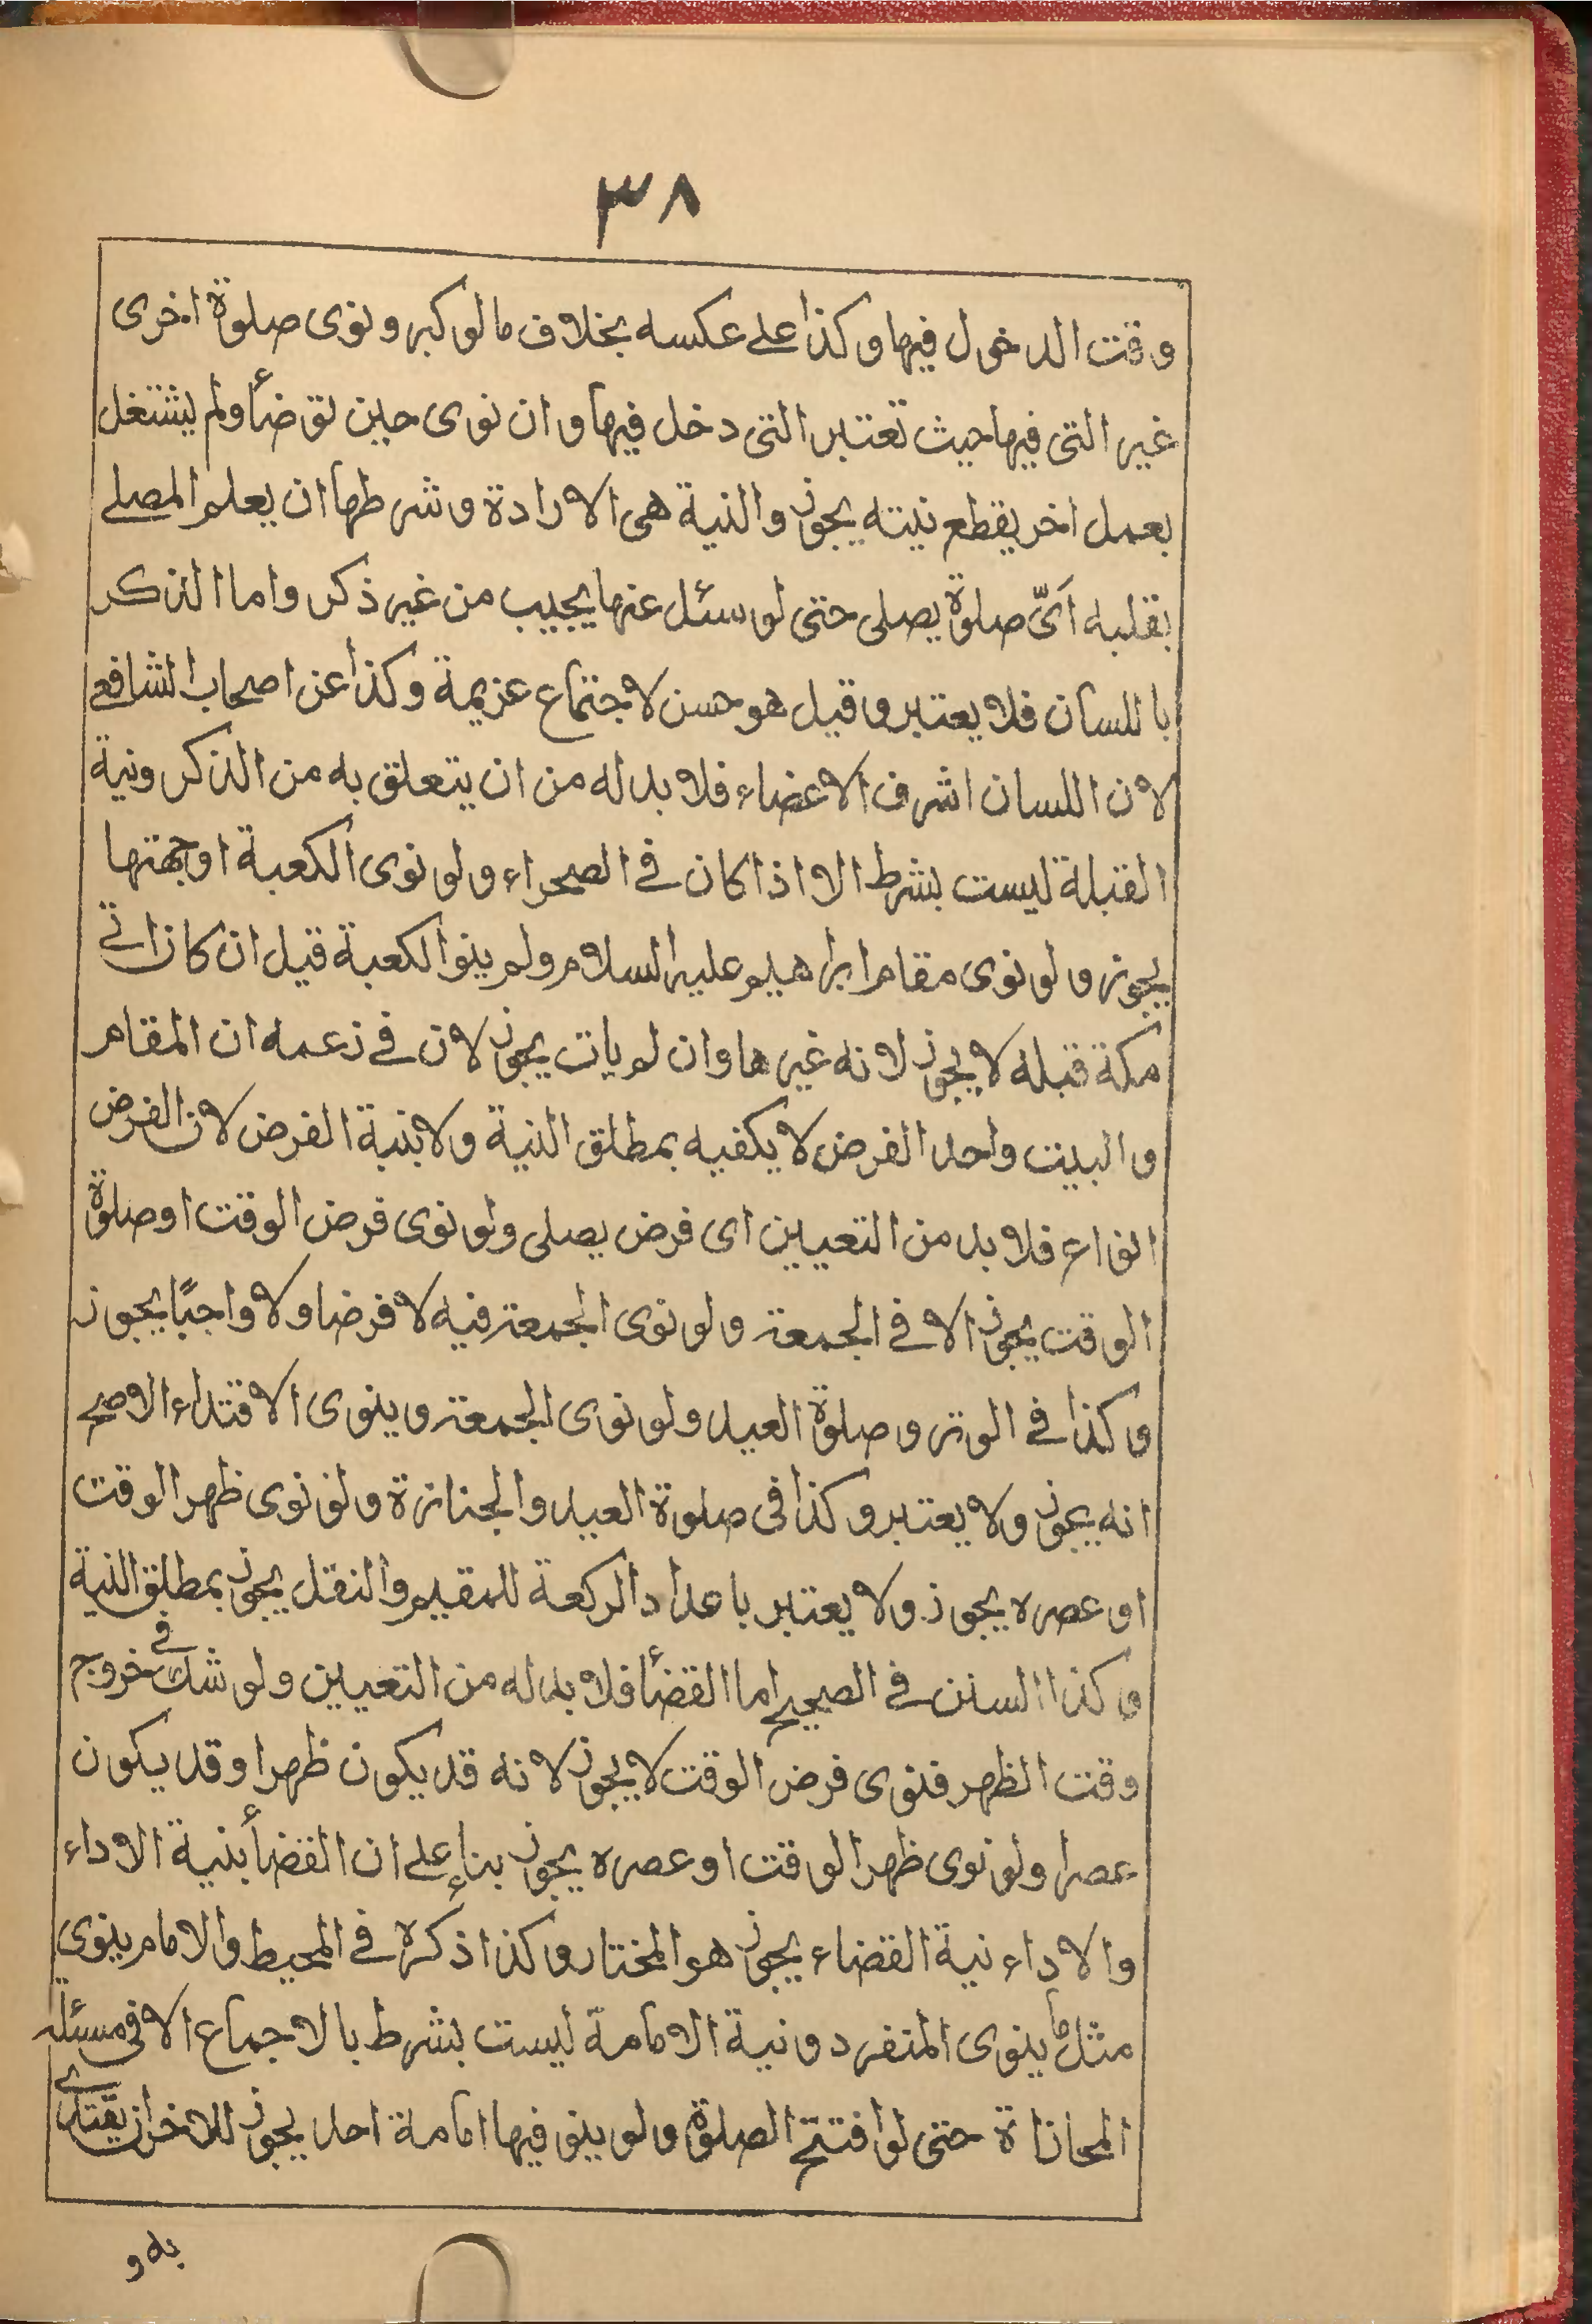 ٣٨
وقت الدخول فيها وكذا على عكسه بخلاف ما لو كبر ونوى صلوة اخرى
غير التى فيها حيث تعتبر التى دخل فيها وان نوى حين توضأ ولم يشتغل
بعمل اخر يقطع نيته يجوز والنية هى الارادة وشرطها ان يعلم المصلے
بقلبه اَىّ صلوة يصلى حتى لو سئل عنها يجيب من غير ذكر واما الذكر
باللسان فلا يعتبر وقيل هو حسن لاجتماع عزيمة وكذا عن اصحاب الشافعے
لان اللسان اشرف الاعضاء فلا بد له من ان يتعلق به من الذكر ونية
القبلة ليست بشرط الا اذا كان فے الصحراء ولو نوى الكعبة او جهتها
يجوز ولو نوى مقام ابراهيم عليه السلام ولم ينو الكعبة قيل ان كان اتے
مكة قبله لا يجوز لانه غيرها وان لم يات يجوز لان فے زعمه ان المقام
والبيت واحد الفرض لا يكفيه بمطلق النية ولا بنية الفرض لان الفرض
انواع فلا بد من التعيين اى فرض يصلى ولو نوى فرض الوقت او صلوة
الوقت يجوز الا فے الجمعة ولو نوى الجمعة فيه لا فرضا ولا واجبًا يجوز
وكذا فے الوتر وصلوة العيد ولو نوى الجمعة وينوى الاقتداء الاصح
انه يجوز ولا يعتبر وكذا فى صلوة العيد والجنازة ولو نوى ظهر الوقت
او عصره يجوز ولا يعتبر باعداد الركعة للمقيم والنفل يجوز بمطلق النية
وكذا السنن فے الصحيح اما القضأ فلا بد له من التعيين ولو شك فے خروج
وقت الظهر فنوى فرض الوقت لا يجوز لانه قد يكون ظهرا وقد يكون
عصرا ولو نوى ظهر الوقت او عصره يجوز بناء على ان القضأ بنية الاداء
والاداء نية القضاء يجوز هو المختار وكذا ذكره فے المحيط والامام ينوى
مثل ما ينوى المنفرد ونية الامامة ليست بشرط بالاجماع الا فى مسئلة
المحاذاة حتى لو افتتح الصلوة ولو ينو فيها امامة احد يجوز للاخر ان يقتدے
به و